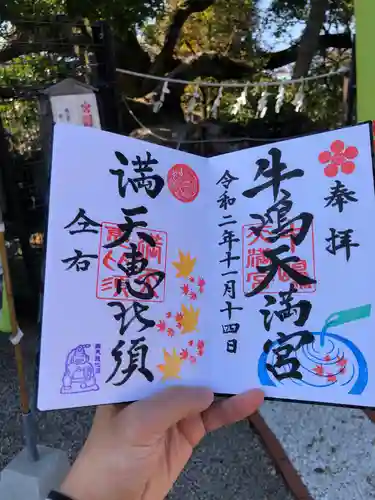 奉拝
牛嶋天満宮
令和二年十一月十四日
満天恵比須
仝右